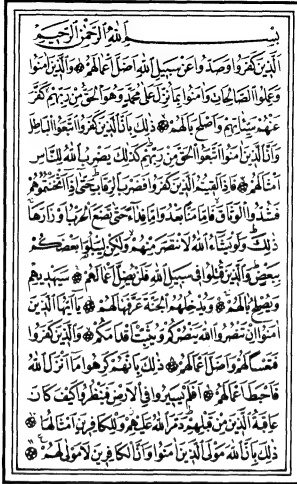 بسم الله الرحمن الرحيم
الذين كفروا وصدوا عن سبيل الله اضل اعمالهم والذين امنوا
وعملوا الصالحات وامنوا بما نزل على محمد وهو الحق من ربهم كفر
عنهم سيئاتهم واصلح بالهم ذلك بان الذين كفروا اتبعوا الباطل
وان الذين امنوا اتبعوا الحق من ربهم كذلك يضرب الله للناس
امثالهم فاذا لقيتم الذين كفروا فضرب الرقاب حتى اذا اثخنتموهم
فشدوا الوثاق فاما منا بعد واما فداء حتى تضع الحرب اوزارها
ذلك ولو يشاء الله لانتصر منهم ولكن ليبلو بعضكم
ببعض والذين قتلوا في سبيل الله فلن يضل اعمالهم سيهديهم
ويصلح بالهم ويدخلهم الجنة عرفها لهم يا ايها الذين
امنوا ان تنصروا الله ينصركم ويثبت اقدامكم والذين كفروا
فتعسا لهم واضل اعمالهم ذلك بانهم كرهوا ما انزل الله
فاحبط اعمالهم افلم يسيروا في الارض فينظروا كيف كان
عاقبة الذين من قبلهم دمر الله عليهم وللكافرين امثالها
ذلك بان الله مولى الذين امنوا وان الكافرين لا مولى لهم